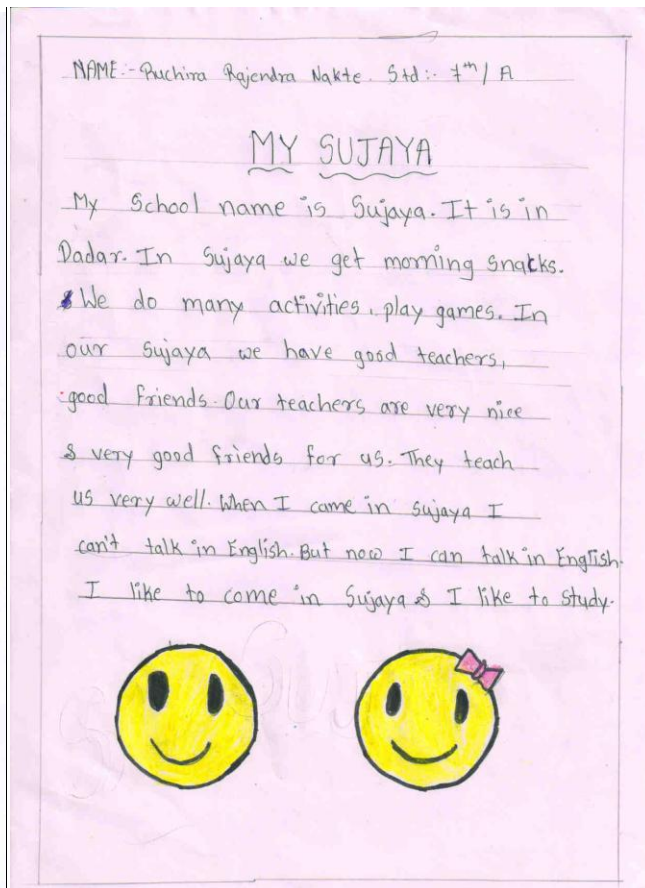 NAME:- Ruchira Rajendra Nakte. Std:- 7th / A
MY SUJAYA
My School name is Sujaya. It is in
Dadar. In Sujaya we get morning snacks.
We do many activities, play games. In
our Sujaya we have good teachers,
good friends. Our teachers are very nice
& very good friends for us. They teach
us very well. When I came in Sujaya I
can't talk in English. But now I can talk in English.
I like to come in Sujaya & I like to study.